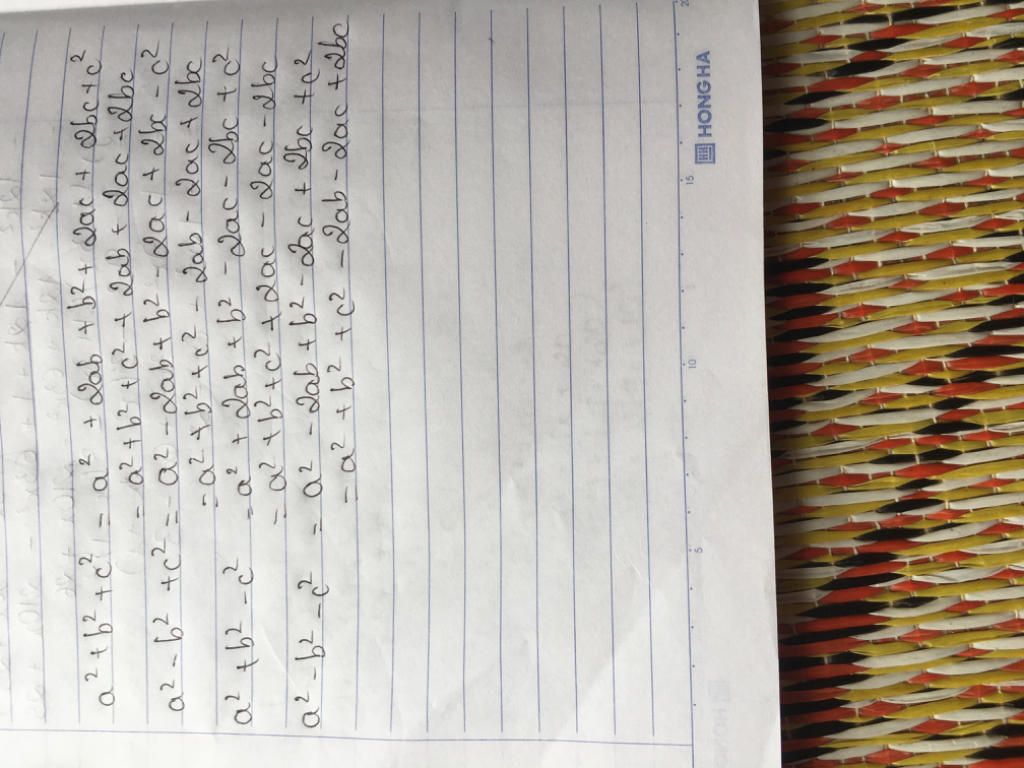 a² + b² + c² = a² + 2ab + b² + 2ac + 2bc + c²
= a² + b² + c² + 2ab + 2ac + 2bc
a² - b² + c² = a² - 2ab + b² - 2ac + 2bc - c²
= a² + b² + c² - 2ab - 2ac + 2bc
a² + b² - c² = a² + 2ab + b² - 2ac - 2bc + c²
= a² + b² + c² + 2ac - 2ac - 2bc
a² - b² - c² = a² - 2ab + b² - 2ac + 2bc + c²
= a² + b² + c² - 2ab - 2ac + 2bc
5 10 15 20
HH HONG HA